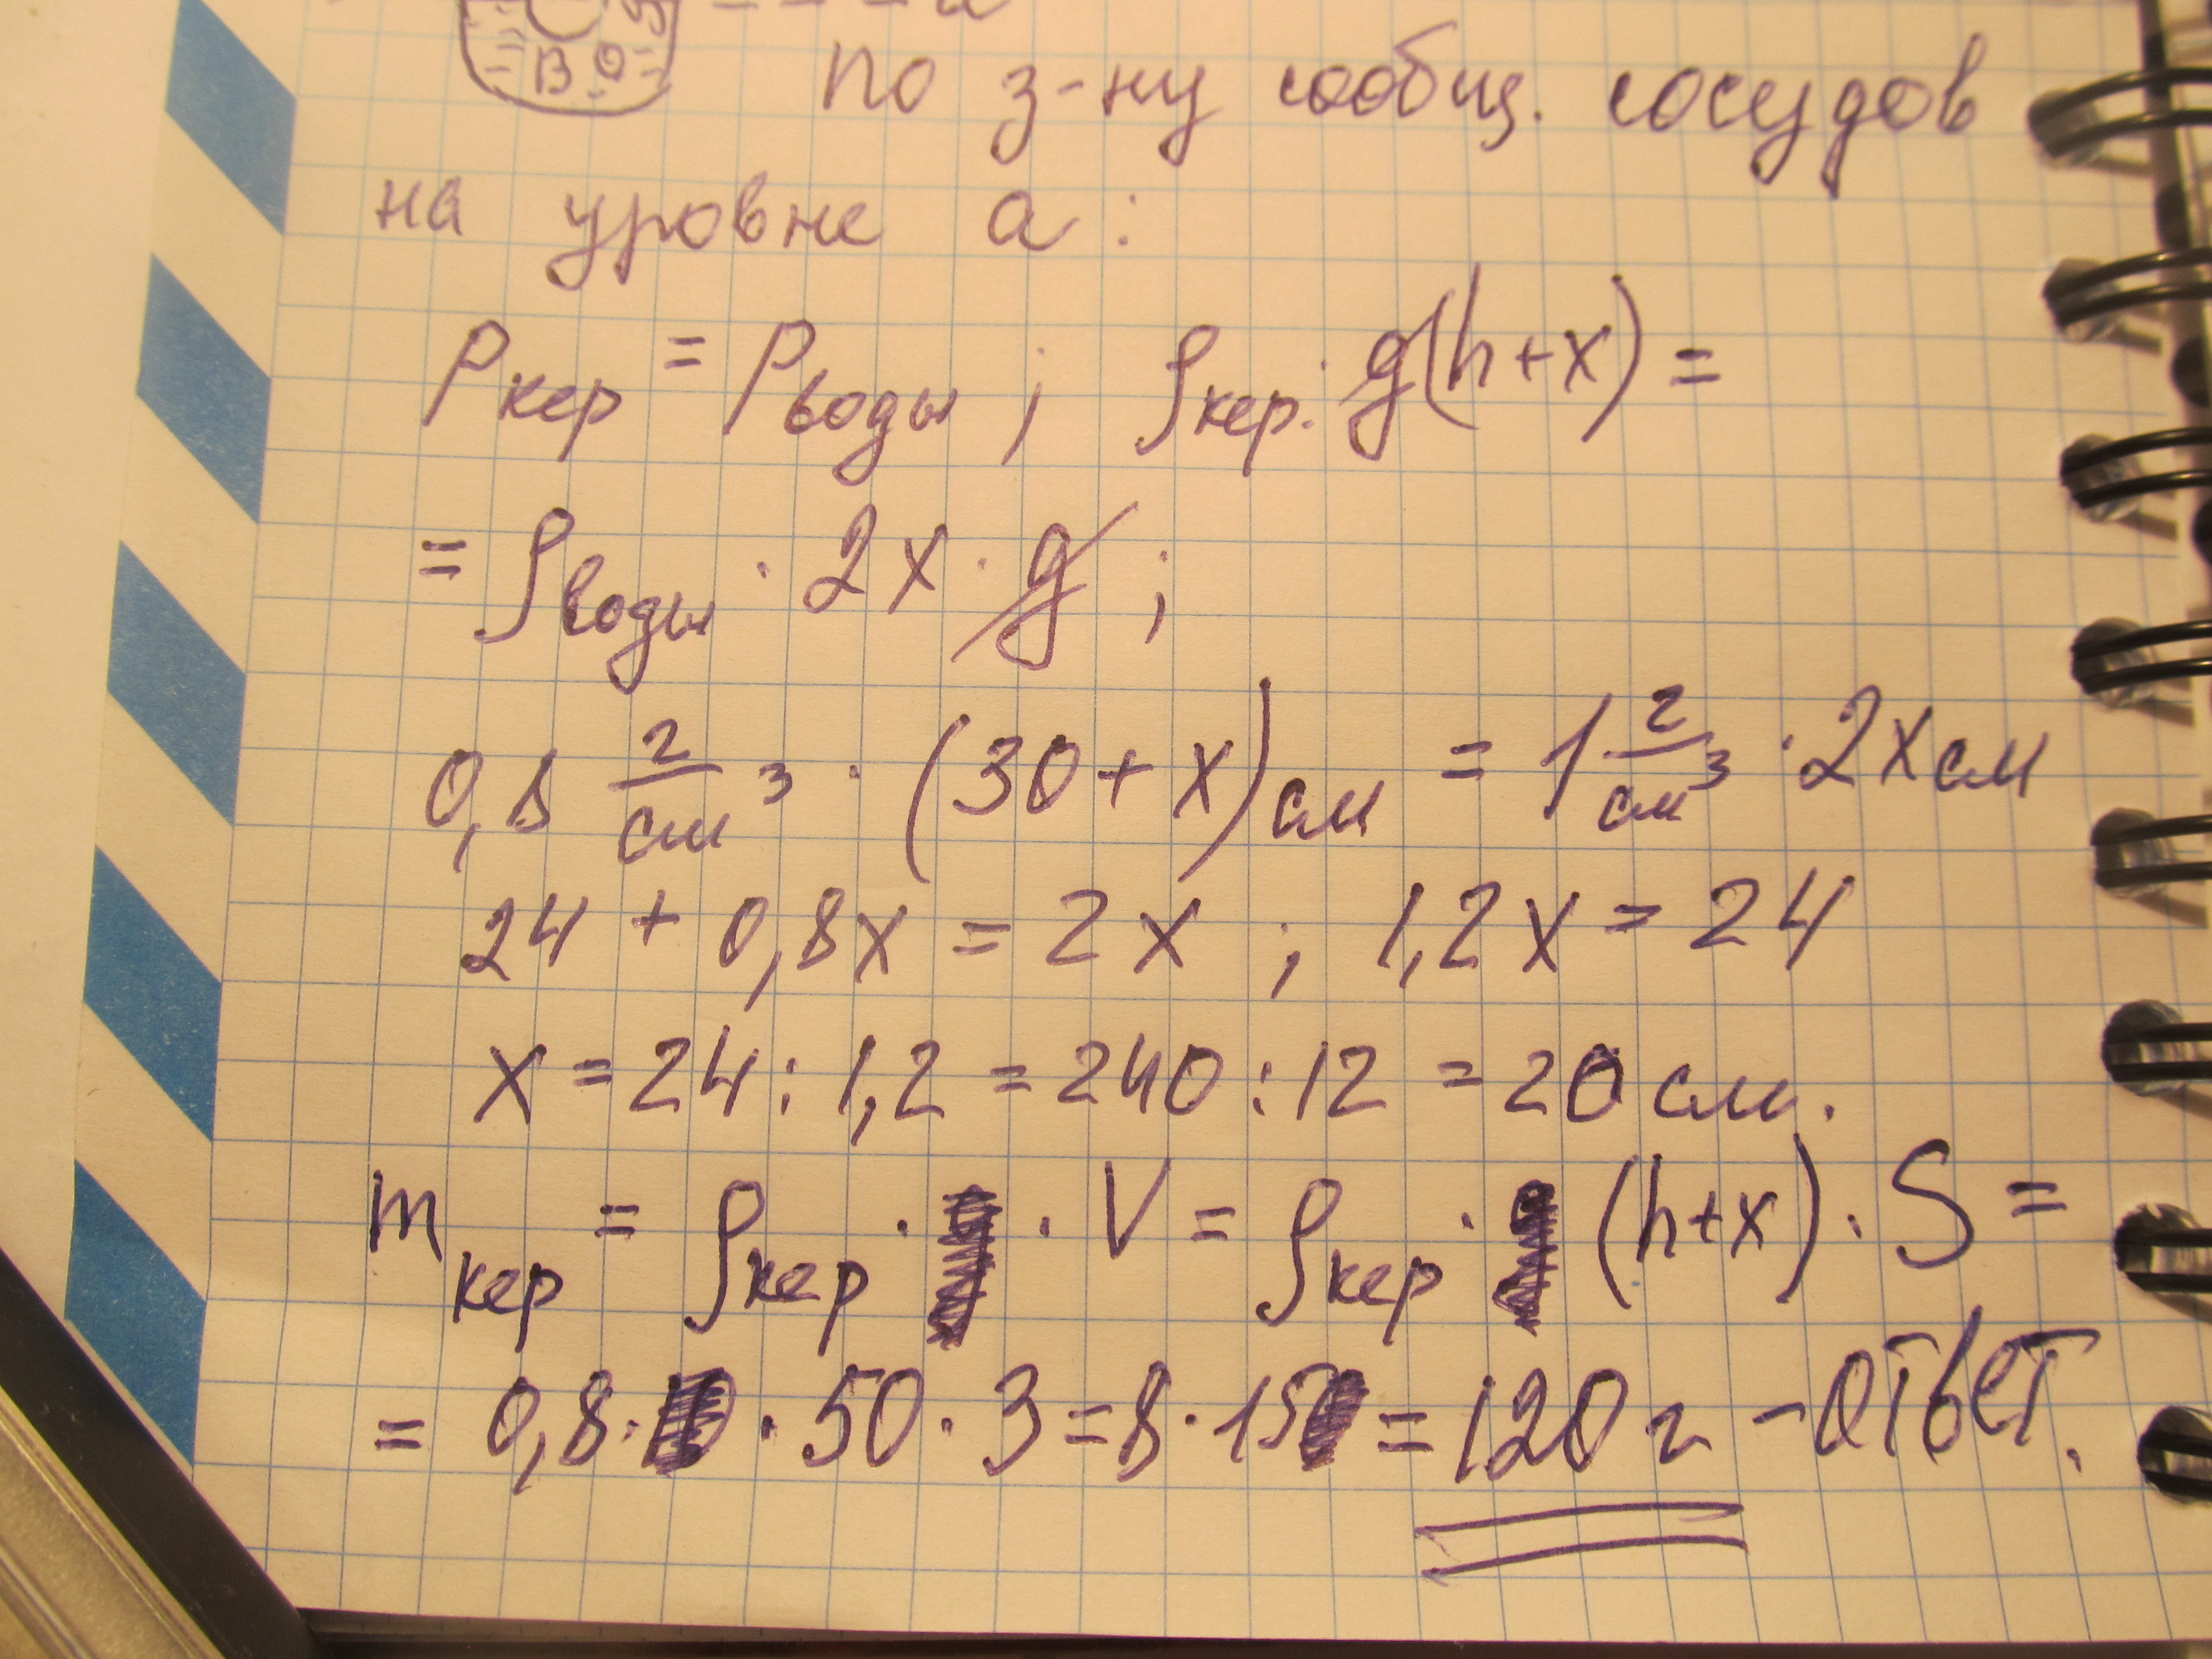 В О
По з-ну сообщ. сосудов
на уровне а:
Pкер = Pводы ; ρкер · g(h+x) =
= ρводы · 2x · g ;
0,8 г/см³ · (30 + x) см = 1 г/см³ · 2x см
24 + 0,8x = 2x ; 1,2x = 24
x = 24 : 1,2 = 240 : 12 = 20 см.
mкер = ρкер · · V = ρкер · (h+x) · S =
= 0,8 · · 50 · 3 = 8 · 15 = 120 г - ответ.